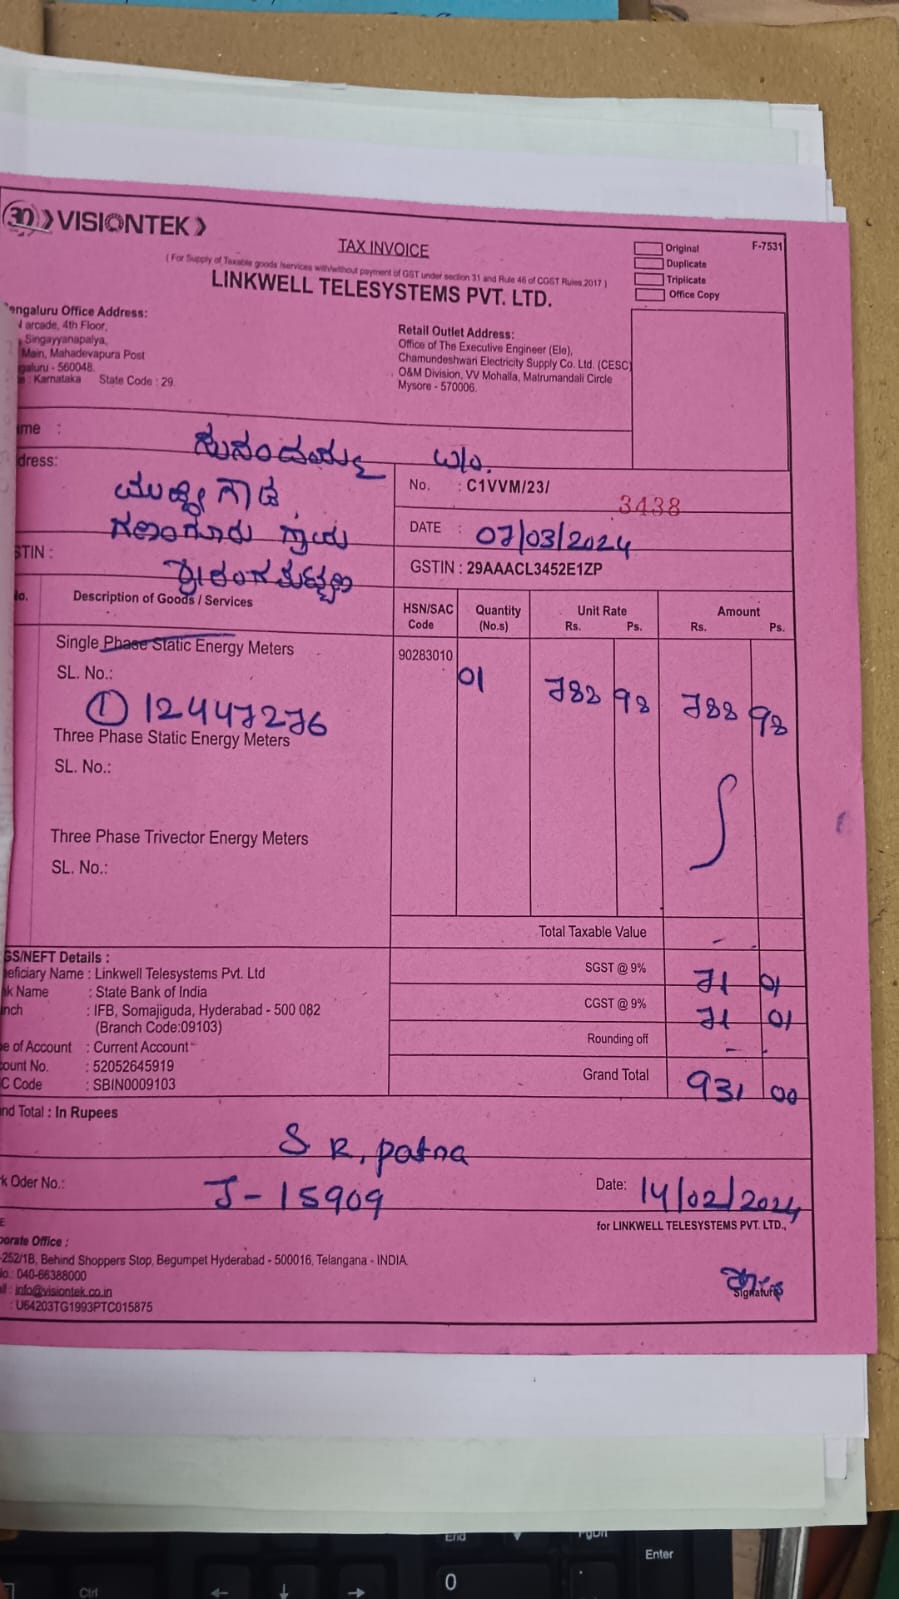 30 VISIONTEK
TAX INVOICE
( For Supply of Taxable goods /services with/without payment of GST under section 31 and Rule 46 of CGST Rules,2017 )
LINKWELL TELESYSTEMS PVT. LTD.
Original
Duplicate
Triplicate
Office Copy
F-7531
engaluru Office Address:
arcade, 4th Floor,
Singayyanapalya,
Main, Mahadevapura Post
galuru - 560048.
: Karnataka State Code : 29.
Retail Outlet Address:
Office of The Executive Engineer (Ele),
Chamundeshwari Electricity Supply Co. Ltd. (CESC)
O&M Division, VV Mohalla, Matrumandali Circle
Mysore - 570006.
ame :
W/o.
dress:
No. : C1VVM/23/ 3438
DATE : 07/03/2024
STIN :
GSTIN : 29AAACL3452E1ZP
o. Description of Goods / Services HSN/SAC Code Quantity (No.s) Unit Rate Rs. Ps. Amount Rs. Ps.
Single Phase Static Energy Meters 90283010 01 788 98 788 98
SL. No.:
① 12447276
Three Phase Static Energy Meters
SL. No.:
Three Phase Trivector Energy Meters
SL. No.:
Total Taxable Value -
SGST @ 9% 71 01
CGST @ 9% 71 01
Rounding off -
Grand Total 931 00
GS/NEFT Details :
eficiary Name : Linkwell Telesystems Pvt. Ltd
k Name : State Bank of India
nch : IFB, Somajiguda, Hyderabad - 500 082
(Branch Code:09103)
e of Account : Current Account
ount No. : 52052645919
C Code : SBIN0009103
nd Total : In Rupees
S R, patna
k Oder No.: J-15909
Date: 14/02/2024
for LINKWELL TELESYSTEMS PVT. LTD.,
porate Office :
-252/1B, Behind Shoppers Stop, Begumpet Hyderabad - 500016, Telangana - INDIA.
No.: 040-66388000
il : info@visiontek.co.in
: U64203TG1993PTC015875
Signature
End
PgDn
Enter
Ctrl
0